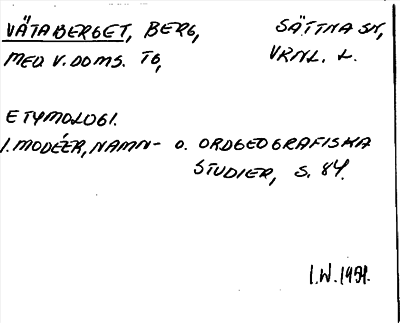 VÄTABERGET, BERG, SÄTTNA SN,
MED V. DOMS. TG, VRNL. L.
ETYMOLOGI.
I. MODÉER, NAMN- O. ORDGEOGRAFISKA
STUDIER, S. 84.
I.W. 1951.